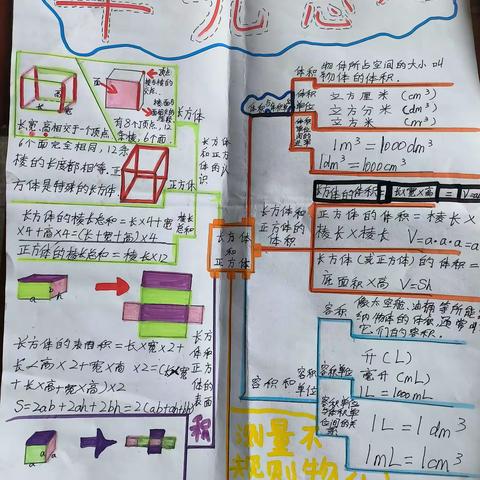 单元总
顶点
棱与棱的交点
面
棱
面与面相交的线段
长
宽
高
有8个顶点,12条棱,6个面
长方体
长、宽、高相交于一个顶点
6个面完全相同,12条
棱的长度都相等.正
方体是特殊的长方体
正方体
长方体和正方体的认识
长方体的棱长总和=长×4+宽
×4+高×4=(长+宽+高)×4
正方体的棱长总和=棱长×12
棱长总和
a
b
h
长方体的表面积=长×宽×2+
长×高×2+宽×高×2=(长×宽
+长×高+宽×高)×2
S=2ab+2ah+2bh=2(ab+ah+bh)
长方体和正方体的表面
积
a
a
a
长方体和正方体
体积
物体所占空间的大小叫
物体的体积.
体积与体积单位
体积单位
立方厘米 (cm³)
立方分米 (dm³)
立方米 (m³)
1m³=1000dm³
1dm³=1000cm³
长方体和正方体的体积
长方体的体积=长×宽×高=V=a
正方体的体积=棱长×
棱长×棱长 V=a·a·a=a
长方体(或正方体)的体积=
底面积×高 V=Sh
容积和
容积单位
容积
像太空舱、油桶等所能
纳物体的体积,通常叫
它们的容积.
容积单位
升(L)
毫升(mL)
1L=1000mL
1L=1dm³
1mL=1cm³
测量不
规则物